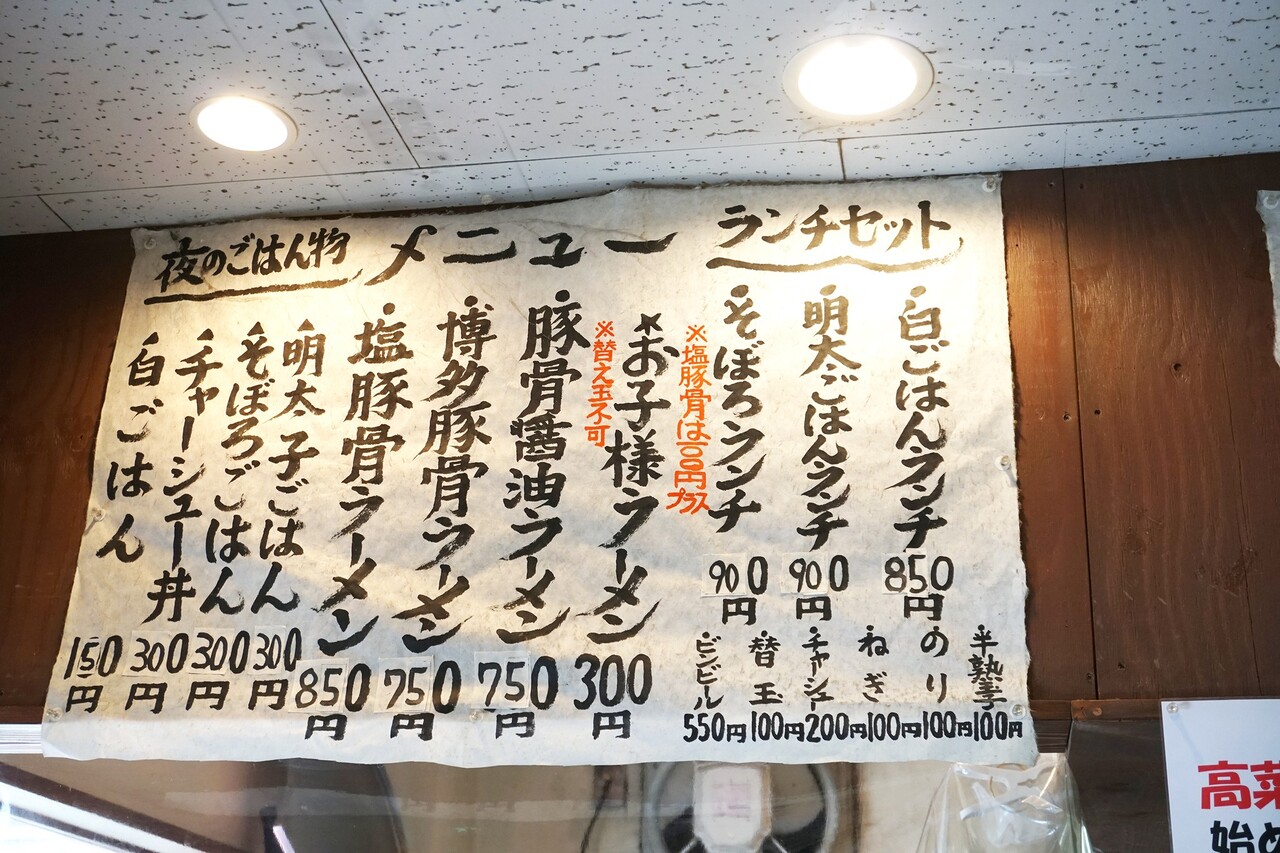 メニュー
ランチセット
・白ごはんランチ
850円
・明太ごはんランチ
900円
・そぼろランチ
900円
※塩豚骨は100円プラス
・半熟玉
100円
・のり
100円
・ねぎ
100円
・チャーシュー
200円
・替玉
100円
・ビンビール
550円
*お子様ラーメン
300円
※替え玉不可
・豚骨醤油ラーメン
750円
・博多豚骨ラーメン
750円
・塩豚骨ラーメン
850円
夜のごはん物
・明太子ごはん
300円
・そぼろごはん
300円
・チャーシュー丼
300円
・白ごはん
150円
高菜
始め